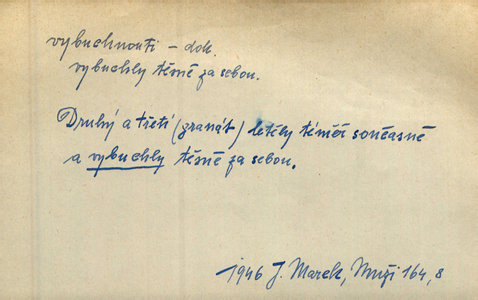 vybuchnouti – dok.
vybuchly těsně za sebou.
Druhý a třetí (granát) letěly téměř současně
a vybuchly těsně za sebou.
1946 J. Marek, Muži 164, 8